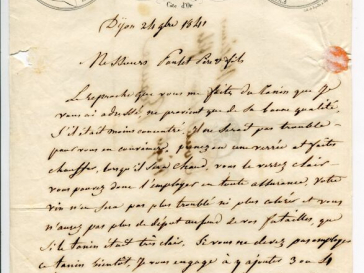 Côte d'Or
Dijon 24 9bre 1841
Messieurs Poulet Père & fils
Le reproche que vous me faites du tanin que je
vous ai adressé, ne provient que de sa bonne qualité.
S'il était moins concentré il ne serait pas trouble
pour vous en convaincre, prenez en une verrée et faites
chauffer, lorsqu'il sera chaud, vous le verrez clair
vous pouvez donc l'employer en toute assurance, votre
vin n'en sera pas plus troublé ni plus coloré et vous
n'aurez pas plus de dépôt au fond de vos futailles, que
si le tanin était très clair. Si vous ne devez pas employer
ce tanin bientôt, je vous engage à y ajouter 3 ou 4